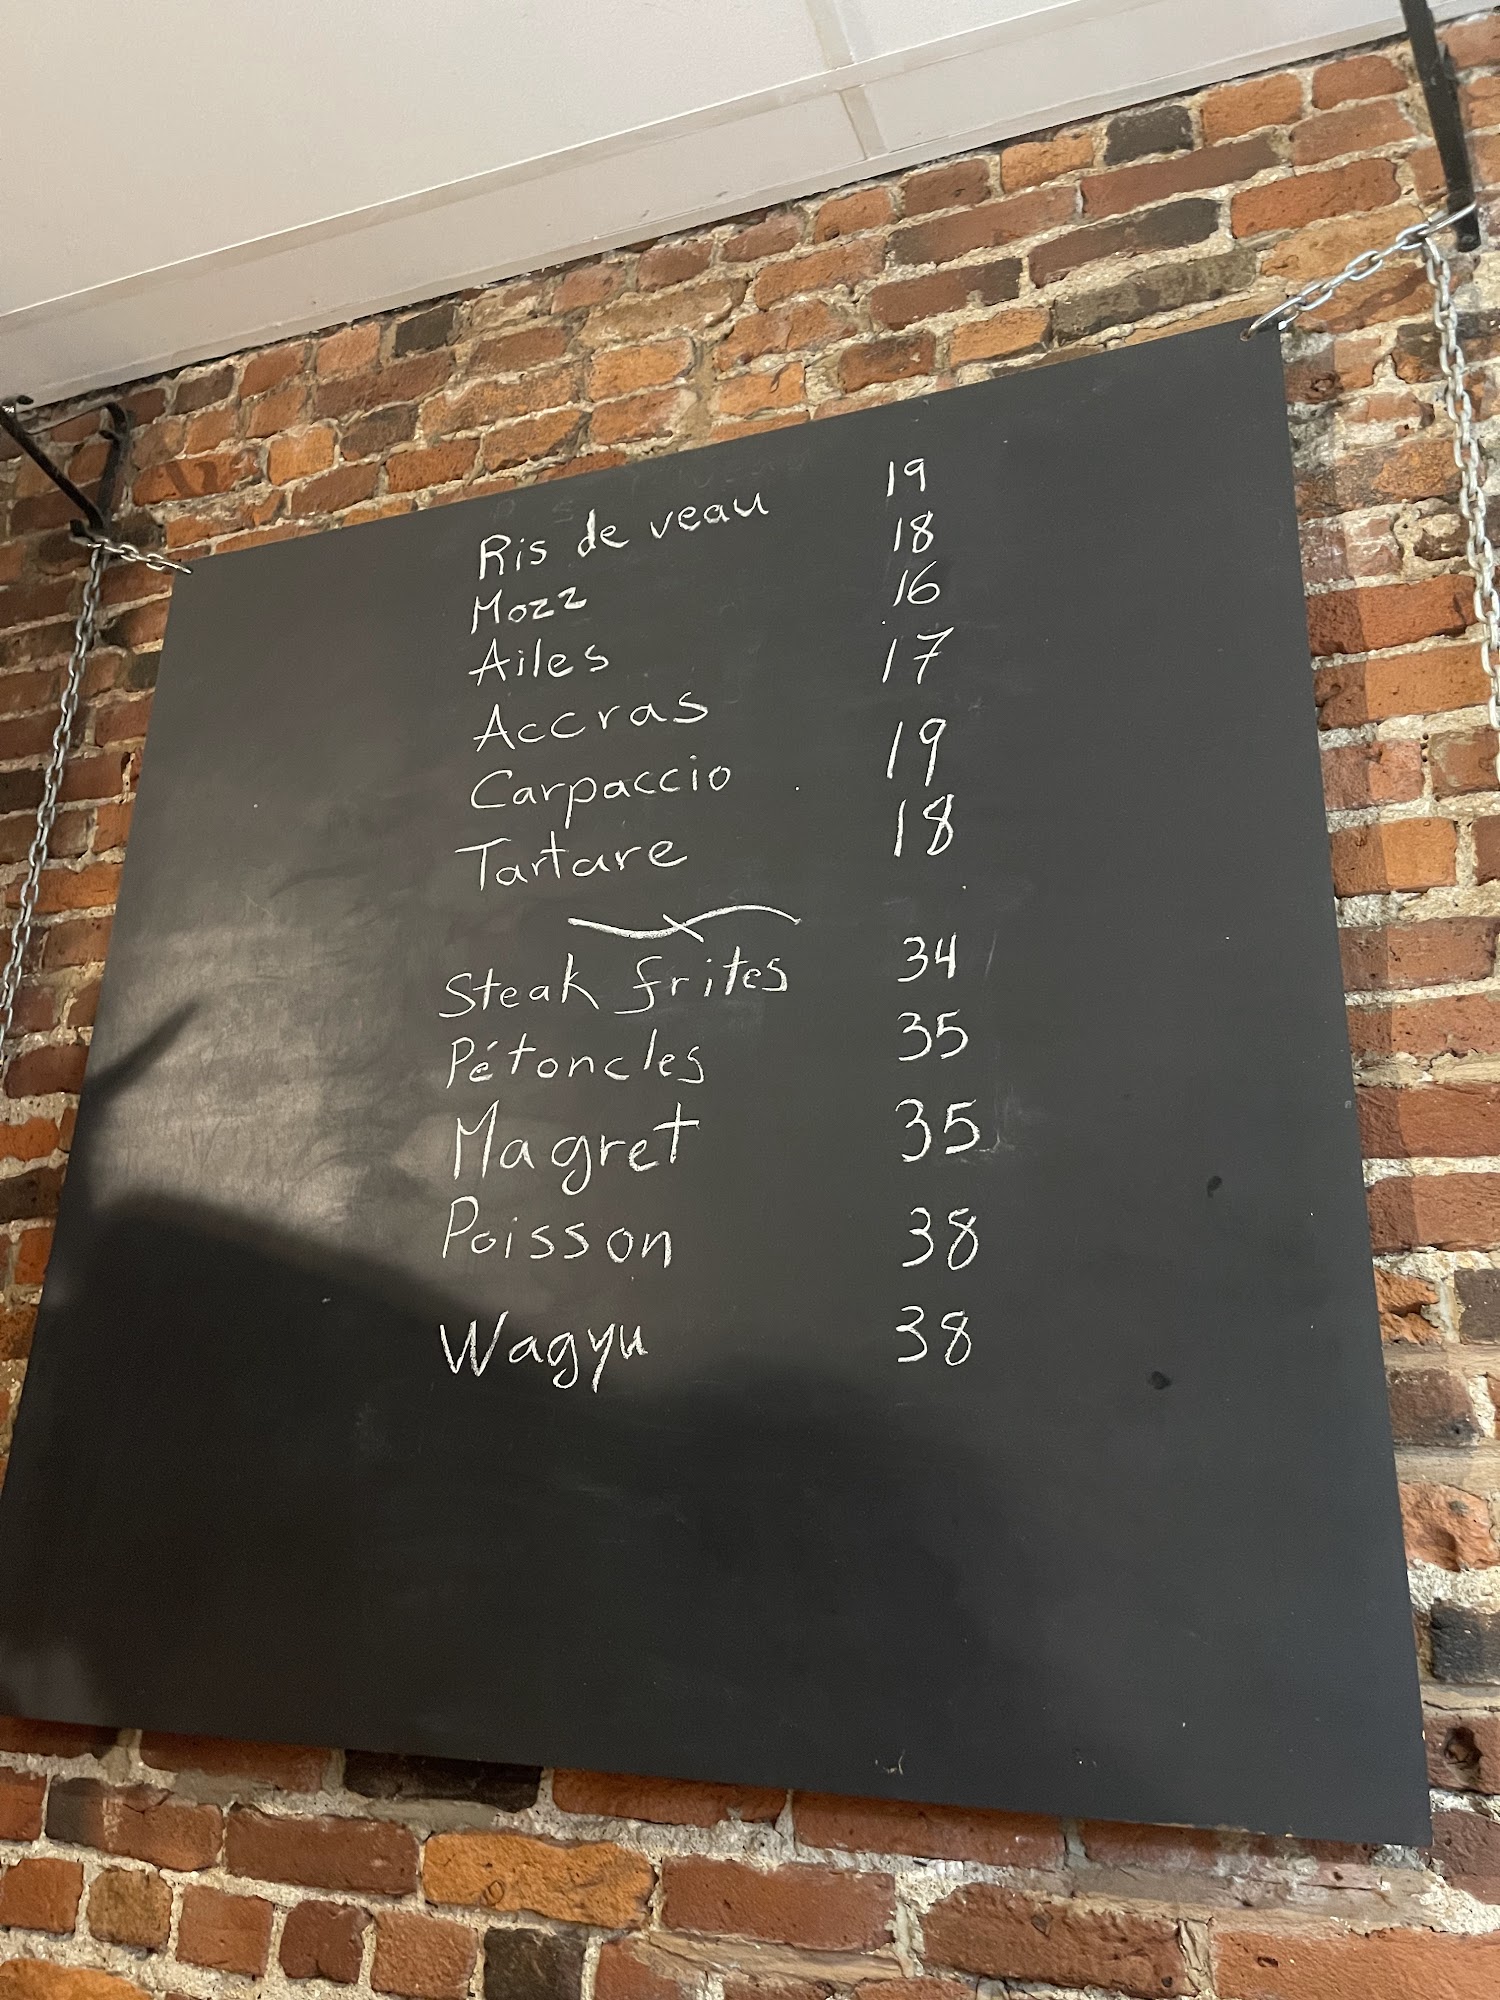 Ris de veau 19
Mozz 18
Ailes 16
Accras 17
Carpaccio 19
Tartare 18
Steak frites 34
Pétoncles 35
Magret 35
Poisson 38
Wagyu 38